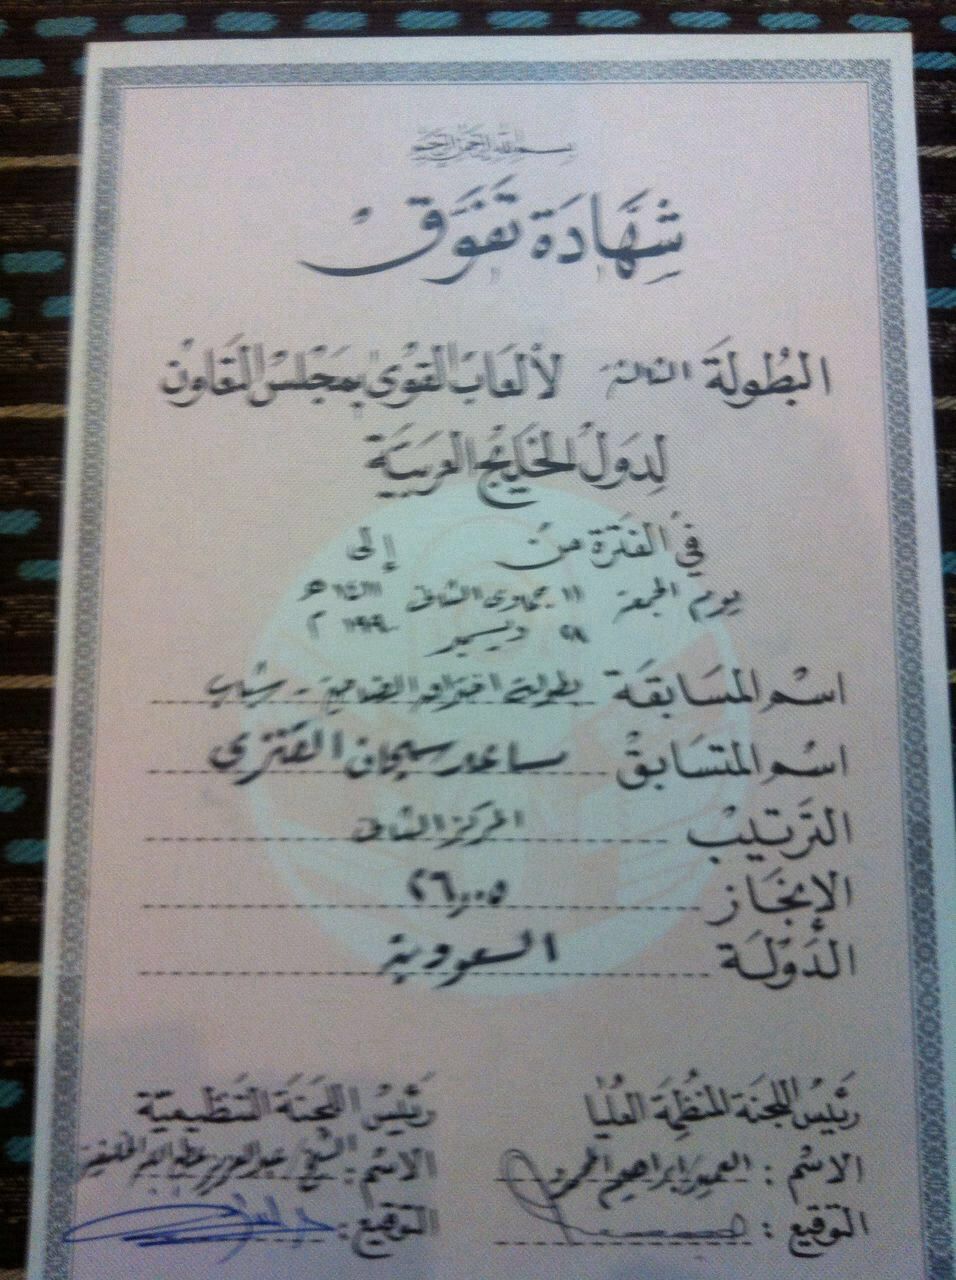 بسم الله الرحمن الرحيم
شهادة تفوق
البطولة الثالثة لألعاب القوى بمجلس التعاون
لدول الخليج العربية
في الفترة من إلى
يوم الجمعة ١١ جمادى الثاني ١٤١١ هـ
٢٨ ديسمبر ١٩٩٠ م
اسم المسابقة بطولة اختراق الضاحية - شباب
اسم المتسابق ساعد سبحان العنزي
الترتيب المركز الثاني
الإنجاز ٢٦٫٠٠٥
الدولة السعودية
رئيس اللجنة المنظمة العليا
الاسم : العميد ابراهيم الحمر
التوقيع :
رئيس اللجنة التنظيمية
الاسم : الشيخ / عبدالعزيز عطية الله الخليفة
التوقيع :